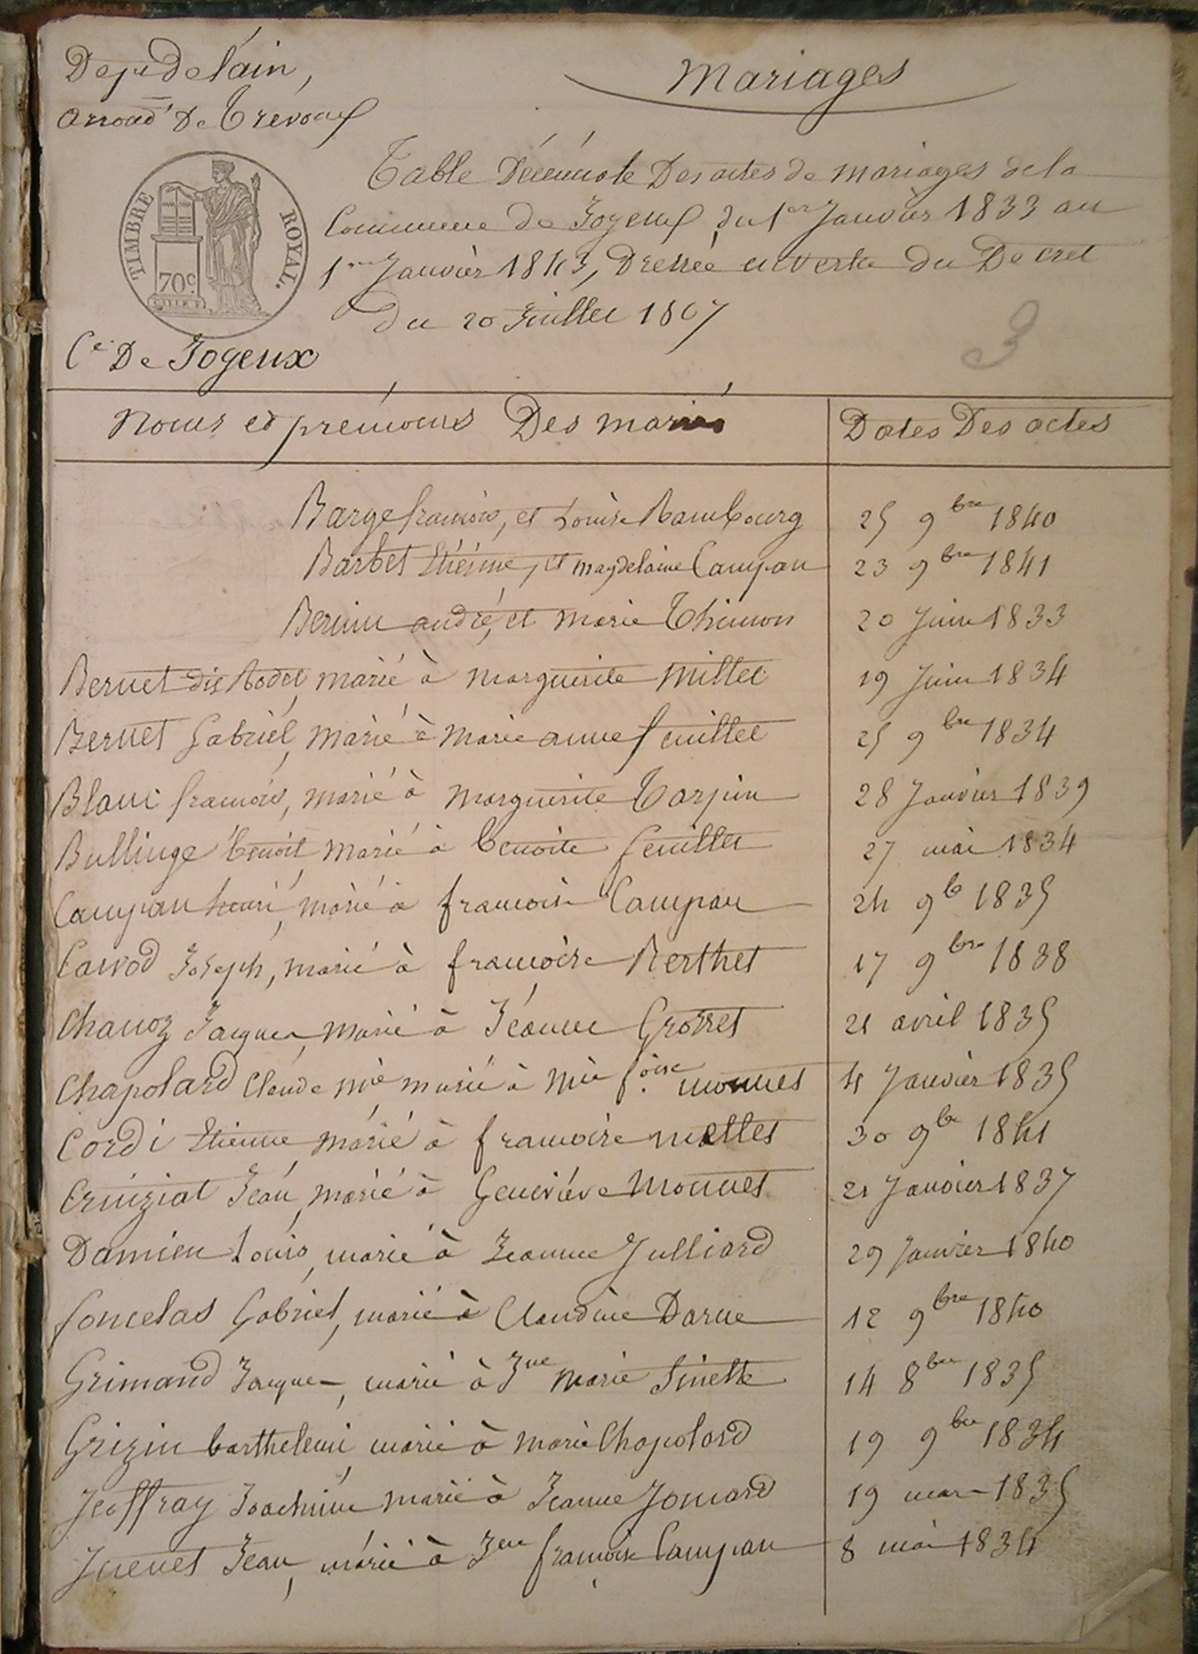 Dept De l'ain,
arrond.t De Trevoux
Mariages
Table Décennale Des actes de mariages de la
Commune de Joyeux du 1er Janvier 1833 au
1er Janvier 1843, Dressée en vertu du Decret
du 20 Juillet 1807
TIMBRE ROYAL.
70c
3
Ce De Joyeux
Noms et prénoms Des mariés
Dates Des actes
Barge francois, et Louise Rambourg 25 9bre 1840
Barbet Etiénne, et magdelaine Campan 23 9bre 1841
Bernin andré, et marie Thimon 20 Juin 1833
Bernet dit Rodet, marié à marguerite Millet 19 Juin 1834
Bernet Gabriel, marié à marie anne feuillet 25 9bre 1834
Blanc francois, marié à marguerite Tarpin 28 Janvier 1839
Bullinge benoit marié à benoite feuillet 27 mai 1834
Campan henri, marié à francoise Campan 24 9b 1835
Carrod Joseph, marié à francoise Berthet 17 9bre 1838
Chanoz Jacques, marié à Jéanne Grosset 21 avril 1835
Chapolard Claude mie marié à mie foise monnet 4 Janvier 1835
Cordi Etienne marié à francoise mettet 30 9br 1841
Cruiziat Jean, marié à Geneviéve Monnet 21 Janvier 1837
Damien Louis, marié à Jeanne Julliard 29 Janvier 1840
foncelas Gabriel, marié à Claudine Darne 12 9bre 1840
Grimand Jacques, marié à Jne Marie Sinette 14 8bre 1835
Grizin barthelemi marié à marie Chapolard 19 9bre 1834
Jeoffray Joachim marié à Jeanne Jomard 19 mars 1835
Juenet Jean, marié à Jne francoise Campan 8 mai 1834